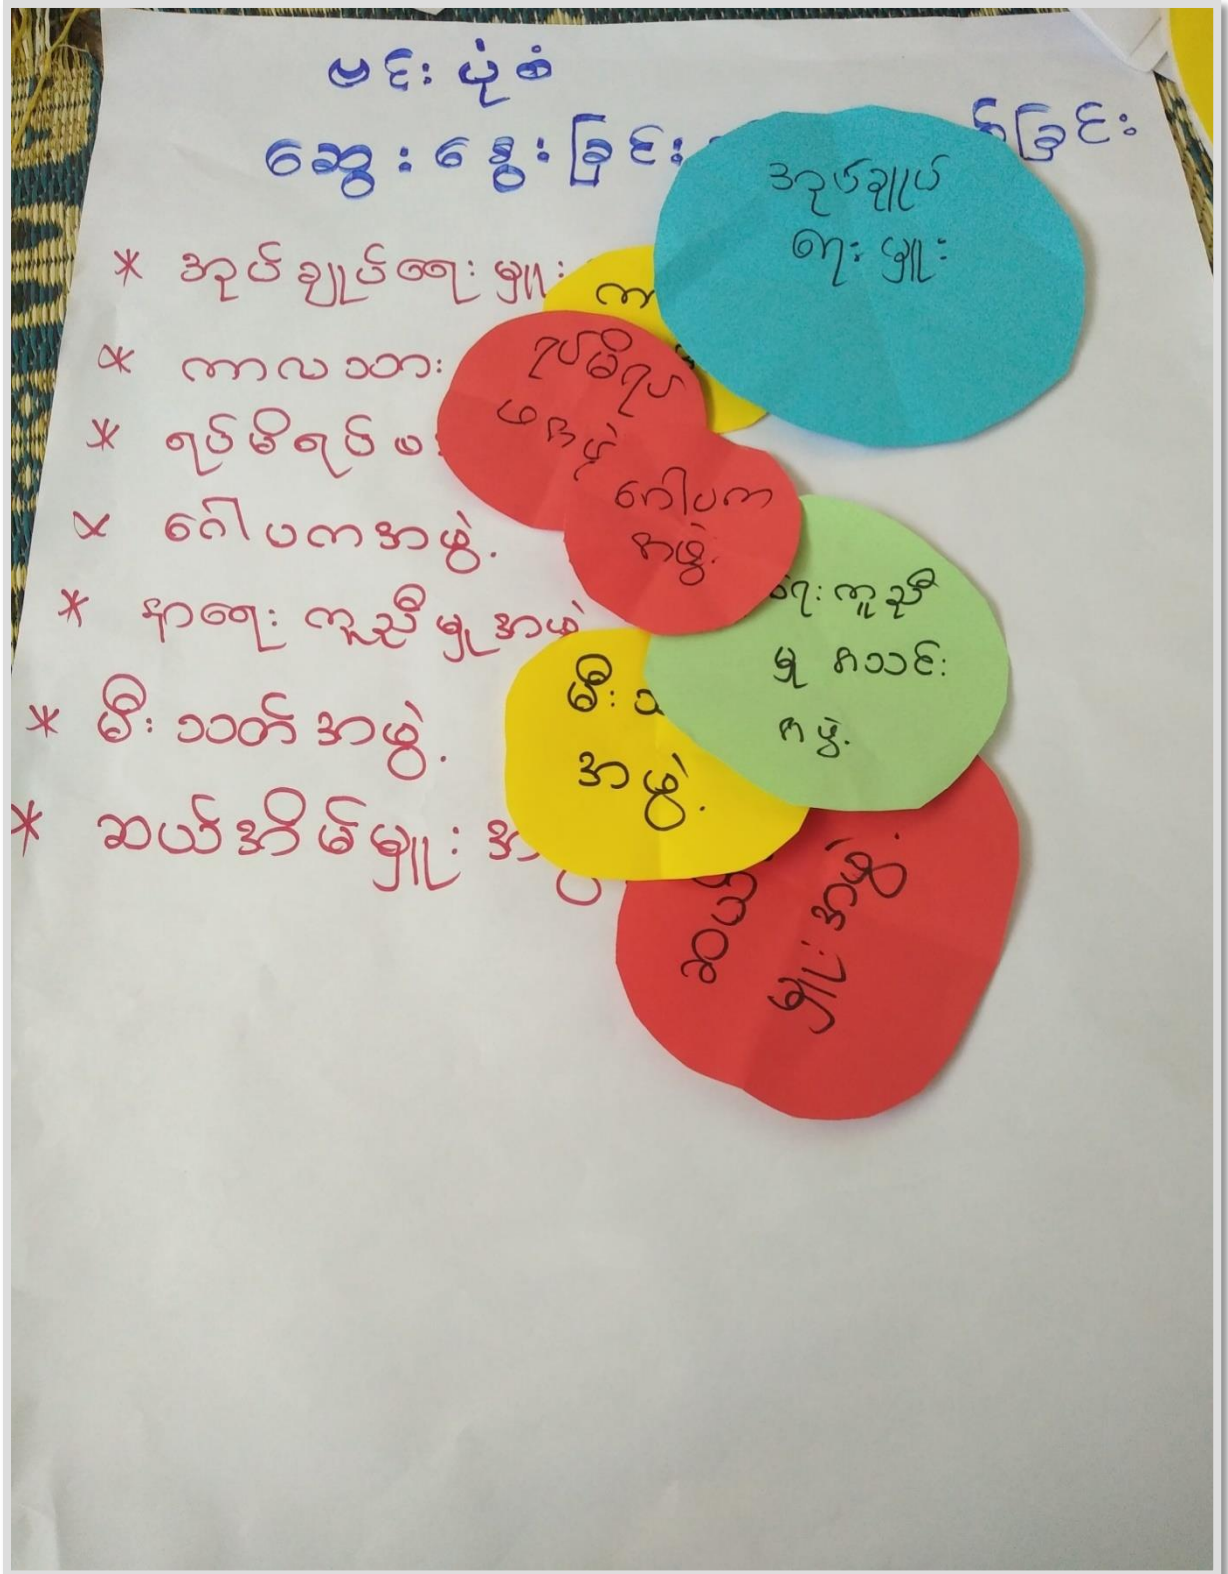 ဗင်းပုံစံ
ဆွေးနွေးခြင်း
* အုပ်ချုပ်ရေးမှူး
* ကာလသား
* ရပ်မိရပ်ဖ
* ဂေါပကအဖွဲ့.
* နာရေးကူညီမှုအဖွဲ့
* မီးသတ်အဖွဲ့.
* ဆယ်အိမ်မှူး
အုပ်ချုပ်
ရေးမှူး
ရပ်မိရပ်
ဖအဖွဲ့
ဂေါပက
အဖွဲ့.
ရေးကူညီ
မှု အသင်း
အဖွဲ့.
မီး
အဖွဲ့.
ဆယ်
မှူးအဖွဲ့.